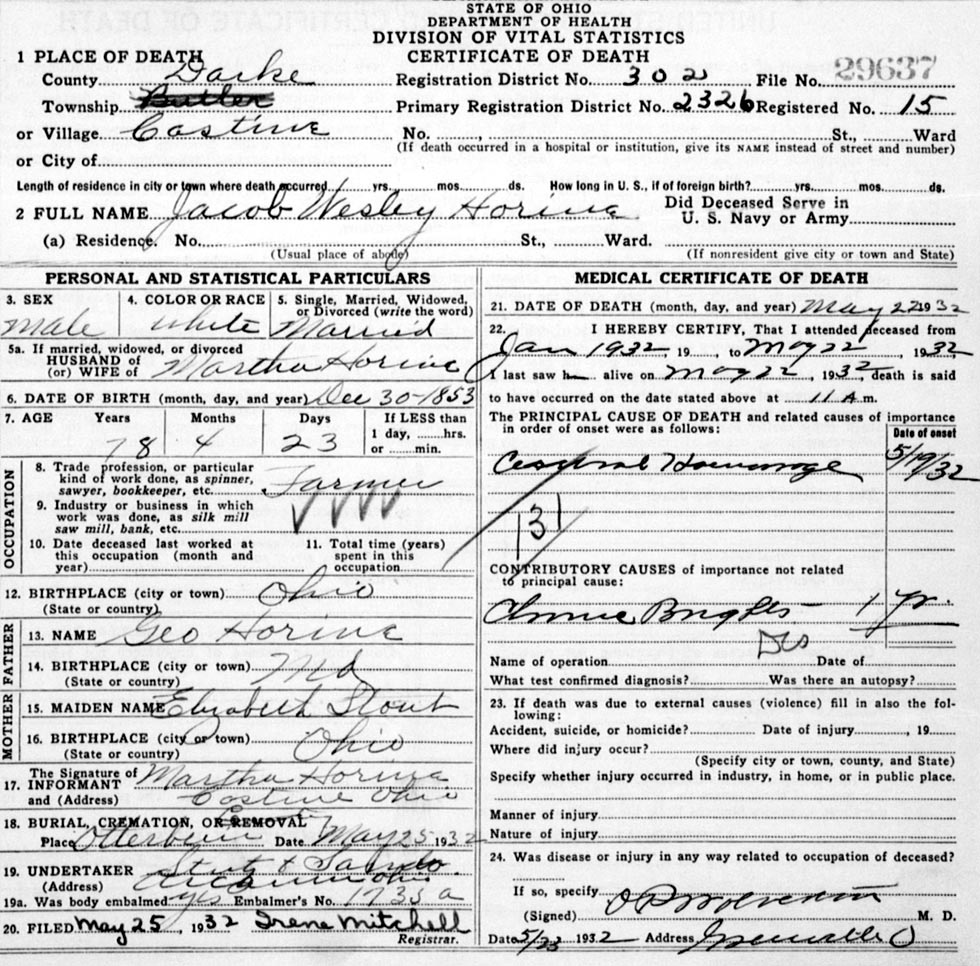 STATE OF OHIO
DEPARTMENT OF HEALTH
DIVISION OF VITAL STATISTICS
CERTIFICATE OF DEATH
1 PLACE OF DEATH
County Darke Registration District No. 302 File No. 29637
Township Butler Primary Registration District No. 2326 Registered No. 15
or Village Castine No. , St., Ward
(If death occurred in a hospital or institution, give its NAME instead of street and number)
or City of
Length of residence in city or town where death occurred yrs. mos. ds. How long in U. S., if of foreign birth? yrs. mos. ds.
2 FULL NAME Jacob Wesley Horine Did Deceased Serve in U. S. Navy or Army
(a) Residence. No. St., Ward.
(Usual place of abode) (If nonresident give city or town and State)
PERSONAL AND STATISTICAL PARTICULARS
3. SEX 4. COLOR OR RACE 5. Single, Married, Widowed, or Divorced (write the word)
Male White Married
5a. If married, widowed, or divorced
HUSBAND of
(or) WIFE of Martha Horine
6. DATE OF BIRTH (month, day, and year) Dec 30-1853
7. AGE Years Months Days If LESS than
1 day, hrs.
or min.
78 4 23
OCCUPATION
8. Trade profession, or particular
kind of work done, as spinner,
sawyer, bookkeeper, etc. Farmer
9. Industry or business in which
work was done, as silk mill
saw mill, bank, etc.
10. Date deceased last worked at
this occupation (month and
year)
11. Total time (years)
spent in this
occupation
12. BIRTHPLACE (city or town) Ohio
(State or country)
FATHER
13. NAME Geo Horine
14. BIRTHPLACE (city or town) Md
(State or country)
MOTHER
15. MAIDEN NAME Elizabeth Stout
16. BIRTHPLACE (city or town) Ohio
(State or country)
17. The Signature of
INFORMANT Martha Horine
and (Address) Castine Ohio
18. BURIAL, CREMATION, OR REMOVAL
Place Otterbein Date May 25 1932
19. UNDERTAKER
(Address) Ohio
19a. Was body embalmed yes Embalmer's No. 1733 a
20. FILED May 25, 1932 Irene Mitchell
Registrar.
MEDICAL CERTIFICATE OF DEATH
21. DATE OF DEATH (month, day, and year) May 22 1932
22. I HEREBY CERTIFY, That I attended deceased from
Jan 1932, 19 , to May 22, 1932
I last saw h alive on May 22, 1932, death is said
to have occurred on the date stated above at 11 A m.
The PRINCIPAL CAUSE OF DEATH and related causes of importance
in order of onset were as follows:
Date of onset
Cerebral Hemorrhage 5/19/32
131
CONTRIBUTORY CAUSES of importance not related
to principal cause:
Chronic Brights 1 yr.
Dis
Name of operation Date of
What test confirmed diagnosis? Was there an autopsy?
23. If death was due to external causes (violence) fill in also the fol-
lowing:
Accident, suicide, or homicide? Date of injury , 19
Where did injury occur?
(Specify city or town, county, and State)
Specify whether injury occurred in industry, in home, or in public place.
Manner of injury
Nature of injury
24. Was disease or injury in any way related to occupation of deceased?
If so, specify
(Signed) M. D.
Date 5/23 1932 Address Greenville O